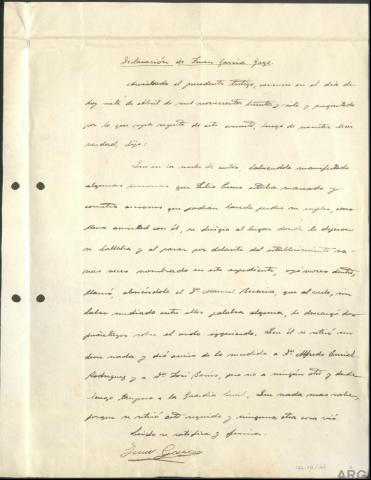 Declaración de Juan García Gago
el precedente testigo, en el día de
hoy siete de Abril de mil novecientos treinta y siete y preguntado
por lo que sepa respecto de este asunto, luego de decir
verdad, dijo:
Que en la noche de autos, habiéndole manifestado
algunas personas que Felix estaba mareado y
acciones que podían hacerle perder su empleo, como
lleva amistad con él, se dirigió al lugar donde le dijeron
se hallaba y al pasar por delante del establecimiento va-
rias veces nombrado en este expediente, oyó voces dentro,
llamó, abriéndole el Dr. Manuel que al verle, sin
haber mediado entre ellos palabra alguna, le descargó dos
puñetazos sobre el oído izquierdo. Que él se retiró sin
decir nada y dió aviso de lo sucedido a D. Alfredo Curiel
Rodriguez y a D. José pero no a ningún otro y desde
luego tampoco a la Guardia Civil. Que nada mas sabe,
porque se retiró acto seguido y ninguna otra cosa vió.
Leida se ratifica y firma.
Juan García